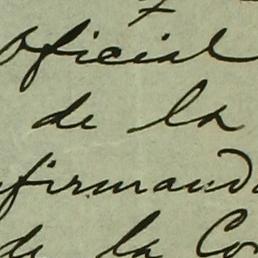 Oficial
de la
firmand
de la Co